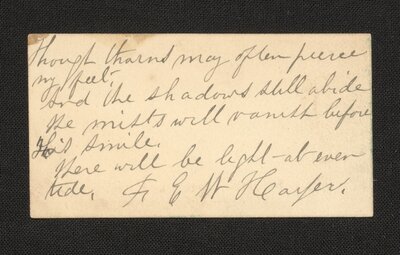 Though thorns may often pierce
my feet.
And the shadows still abide
The mists will vanish before
His smile.
There will be light at even
tide. F E W Harper.